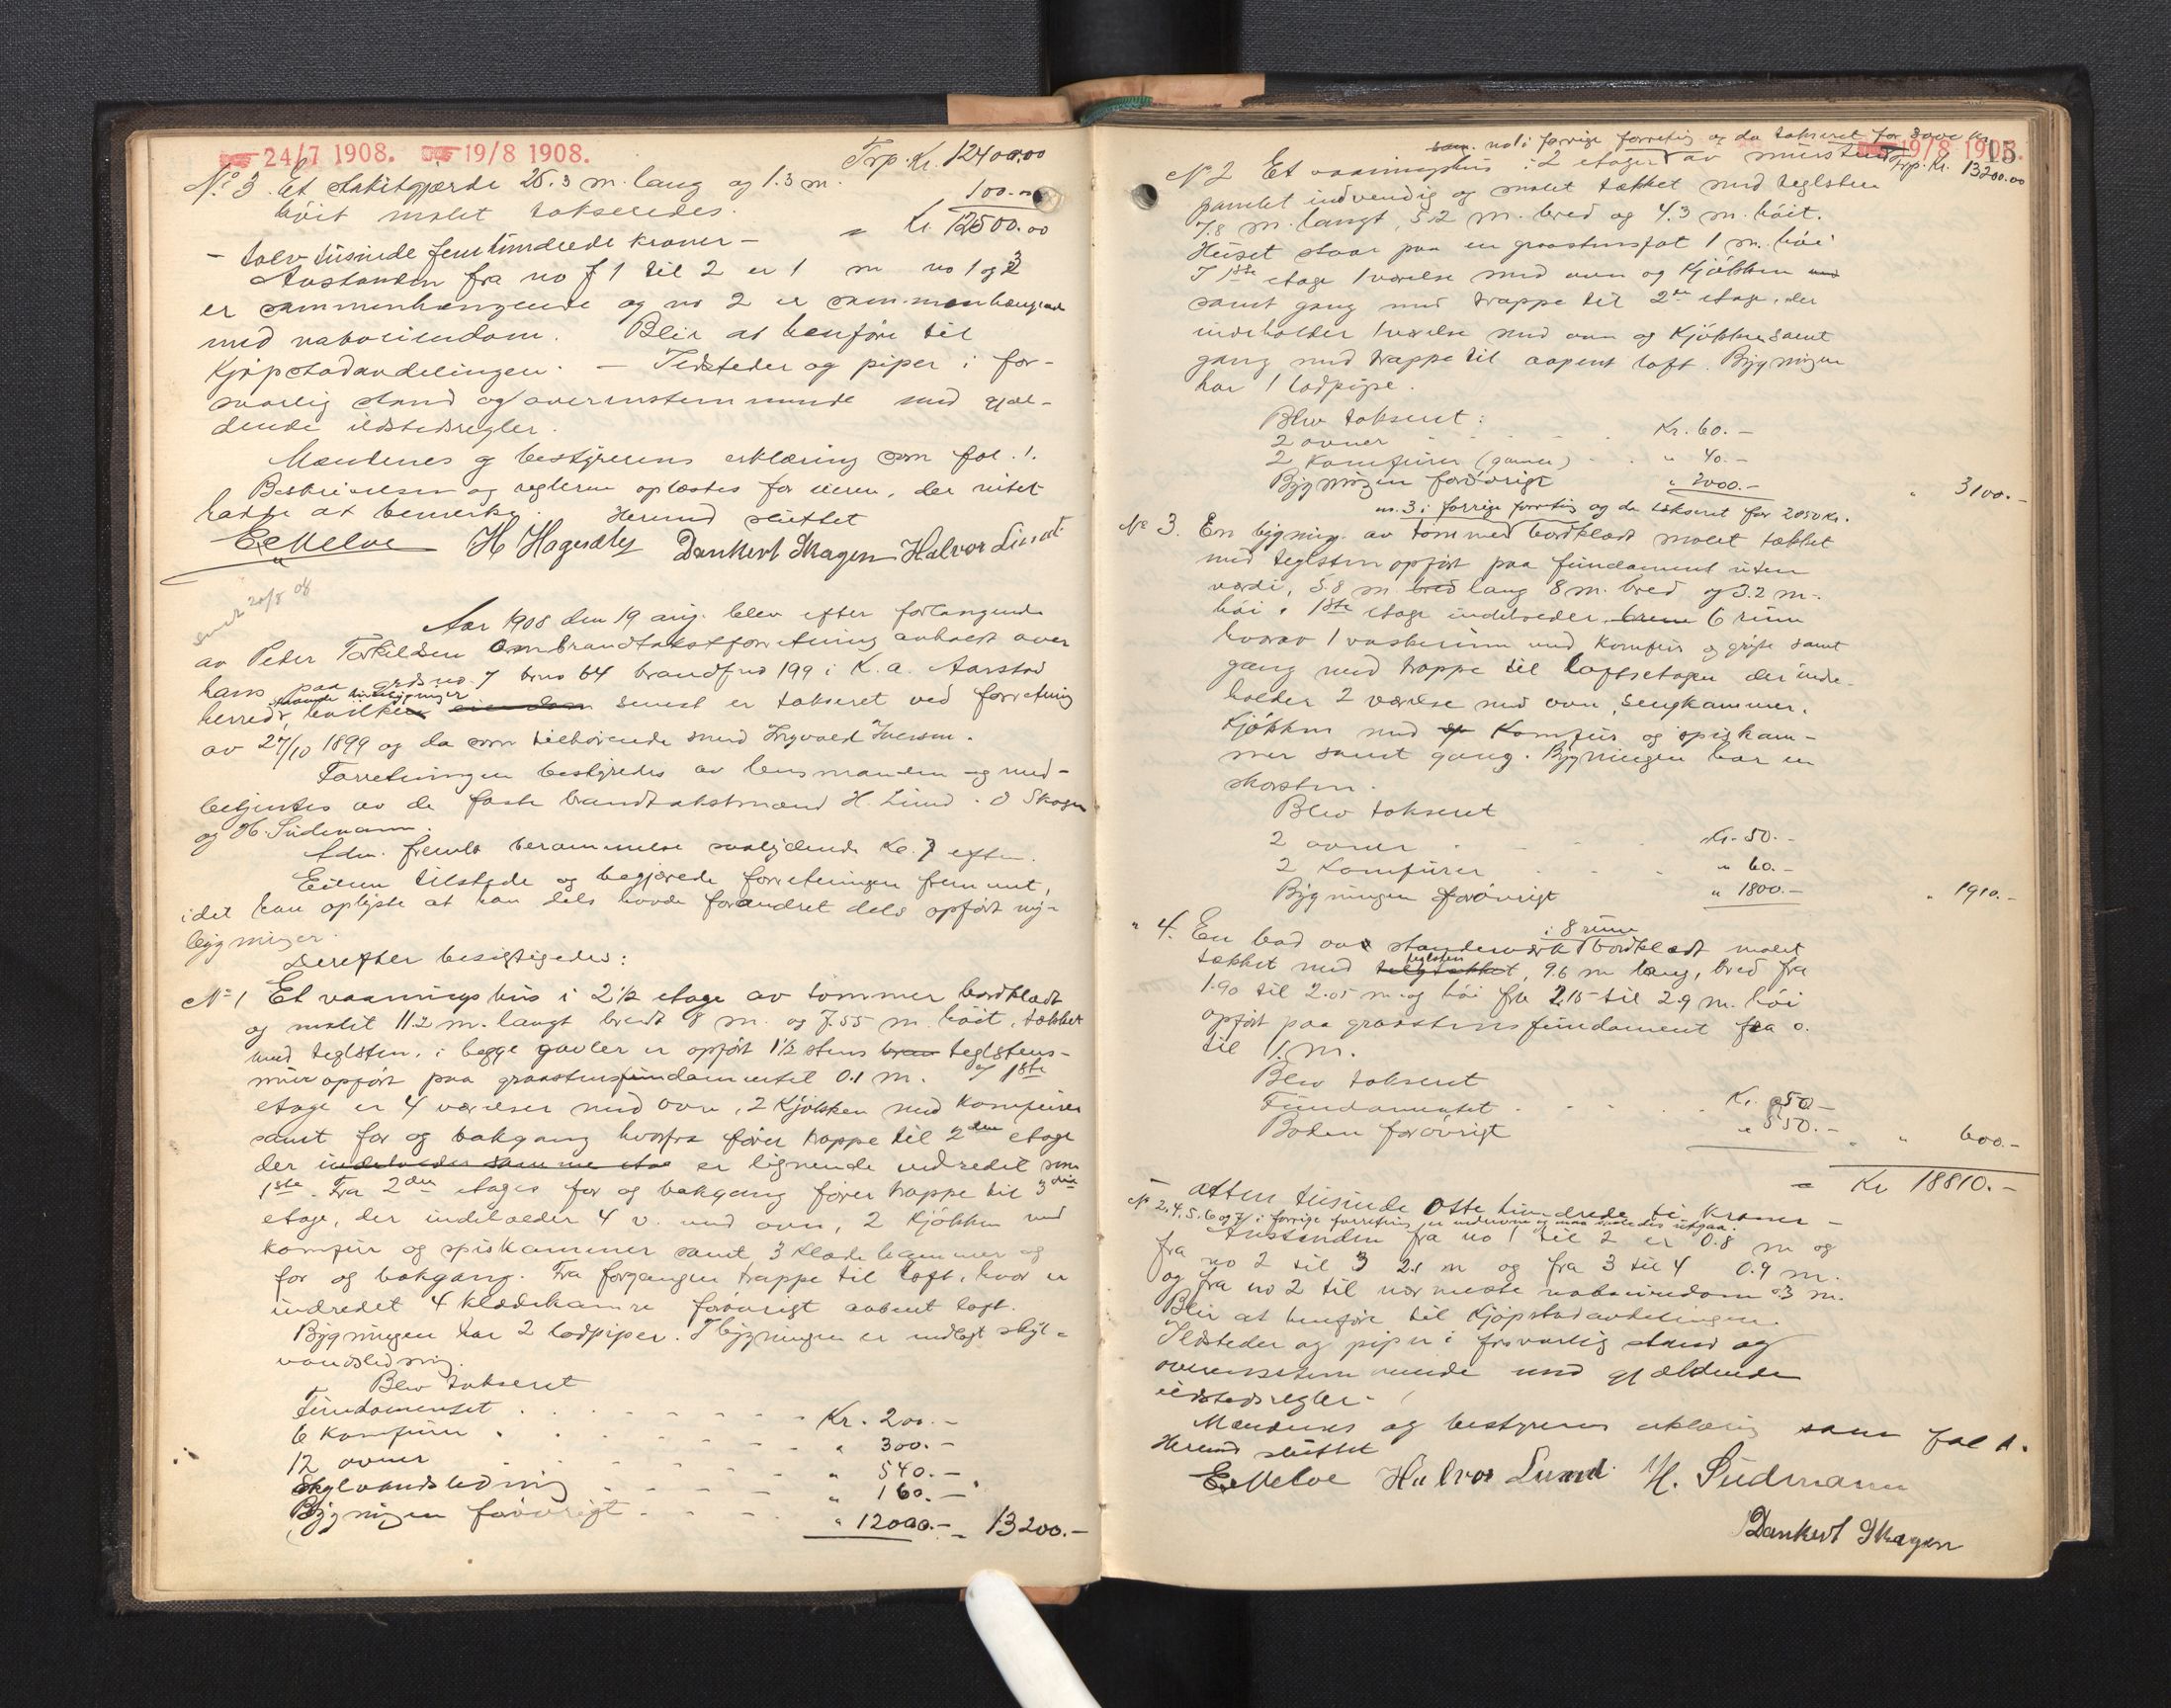 24/7 1908. 19/8 1908.
Trp. Kr. 12400.00
No 3. Et stakitgjærde 25.3 m. lang og 1.3 m.
høit malet takseredes. 100.00
- tolv tusinde femhundrede kroner - = Kr. 12500.00
Avstanden fra no 1 til 2 er 1 m no 1 og 3
er sammenhængende og no 2 er sammenhængende
med naboeiendom. Blir at henføre til
Kjøpstadavdelingen. — Ildsteder og piper i for-
svarlig stand og overensstemmende med gjæl-
dende ildstedsregler.
Mændenes og bestyrerens erklæring som fol. 1.
Beskrivelsen og reglerne oplæstes for eieren, der intet
hadde at bemerke. Hermed sluttet
E. Melve H Hagesæty Dankert Skagen Halvor Lund
sendt 20/8 08
Aar 1908 den 19 aug. blev efter forlangende
av Peder Torkildsen ombrandtakstforretning avholdt over
hans paa grds no. 7 brno 64 brandfno 199 i K. a. Aarstad
staaende husbygninger
herred, hvilken eiendom senest er takseret ved forretning
av 27/10 1899 og da som tilhørende smed Ingvald Iversen.
Forretningen bestyredes av lensmanden og med-
betjentes av de faste brandtakstmænd H. Lund. D Skagen
og H. Südmann.
Adm. fremla berammelse saalydende Kl. 7 efterm.
Eieren tilstede og begjærede forretningen fremmet,
idet han oplyste at han dels hadde forandret dels opført ny-
bygninger.
Derefter besigtigedes:
No 1 Et vaaningshus i 2 1/2 etage av tømmer bordklædt
og malet 11.2 m. langt bredt 8 m. og 7.55 m. høit, tækket
med teglsten, i begge gavler er opført 1 1/2 stens teglstens-
mur opført paa graastensfundament til 0.1 m. I 1ste
etage er 4 værelser med ovn, 2 Kjøkken med Komfurer
samt for og bakgang hvorfra fører trappe til 2den etage
der indeholder samme eta er lignende indredet som
1ste. Fra 2den etages for og bakgang fører trappe til 3die
etage, der indeholder 4 v. med ovn, 2 Kjøkken med
komfur og spiskammer samt 3 Klædekammer og
for og bakgang. Fra forgangen trappe til loft, hvor er
indredet 4 klædekamre forøvrigt aabent loft.
Bygningen har 2 lodpiper. I bygningen er indlagt skyl-
vandsledning.
Blev takseret
Fundamentet Kr. 200.-
6 Komfurer " 300.-
12 ovner " 540.-
Skylvandsledning " 160.-
Bygningen forøvrigt " 12000.- = 13200.-
15
19/8 1908.
sam. no 1 i forrige forretning og da takseret for 3000 kr
Trp. Kr. 13200.00
No 2 Et vaaningshus i 2 etager av mursten
panelet indvendig og malet tækket med teglsten
7.8 m. langt, 5.2 m. bred og 4.3 m. høit.
Huset staar paa en graastensfot 1 m. høi
I 1ste etage 1 værelse med ovn og Kjøkken med
samt gang med trappe til 2den etage, der
indeholder 1 værelse med ovn og Kjøkken samt
gang med trappe til aapent loft. Bygningen
har 1 lodpipe.
Blev takseret:
2 ovner Kr. 60.-
2 Komfurer (gamle) " 40.-
Bygningen forøvrigt " 3000.- " 3100.-
no. 3 i forrige forretning og da takseret for 2050 Kr.
No 3. En bygning av tømmer bordklædt malet tækket
med teglsten opført paa fundament uten
værdi, 5.8 m bred lang 8 m. bred og 3.2 m.
høi. 1ste etage indeholder 6 rum
hvorav 1 vaskerum med Komfur og gryte samt
gang med trappe til loftsetagen der inde-
holder 2 værelse med ovn, sengkammer.
Kjøkken med Komfur og spiskam-
mer samt gang. Bygningen har en
skorsten.
Blev takseret
2 ovner Kr. 50.-
2 Komfurer " 60.-
Bygningen forøvrigt " 1800.- " 1910.-
i 8 rum
" 4. En bod av standerverk bordklædt malet
teglsten
tækket med telgtækket, 9.6 m lang, bred fra
1.90 til 2.05 m. og høi fra 2.15 til 2.9 m. høi
opført paa graastensfundament fra 0.
til 1 m.
Blev takseret
Fundamentet Kr. 50.-
Boden forøvrigt " 550.- " 600.-
= Kr 18810.-
- atten tusinde otte hundrede ti kroner -
No 2, 4, 5, 6 og 7 i forrige forretning er nedrevne og maa saaledes utgaa.
Avstanden fra no 1 til 2 er 0.8 m og
fra no 2 til 3 2.1 m og fra 3 til 4 0.9 m.
og fra no 2 til nærmeste naboeiendom 3 m.
Blir at henføre til Kjøpstadavdelingen.
Ildsteder og piper i forsvarlig stand og
overensstemmende med gjældende
ildstedsregler.
Mændenes og bestyrerens erklæring som fol 1.
Hermed sluttet
E. Melve Halvor Lund. H. Südmann
Dankert Skagen